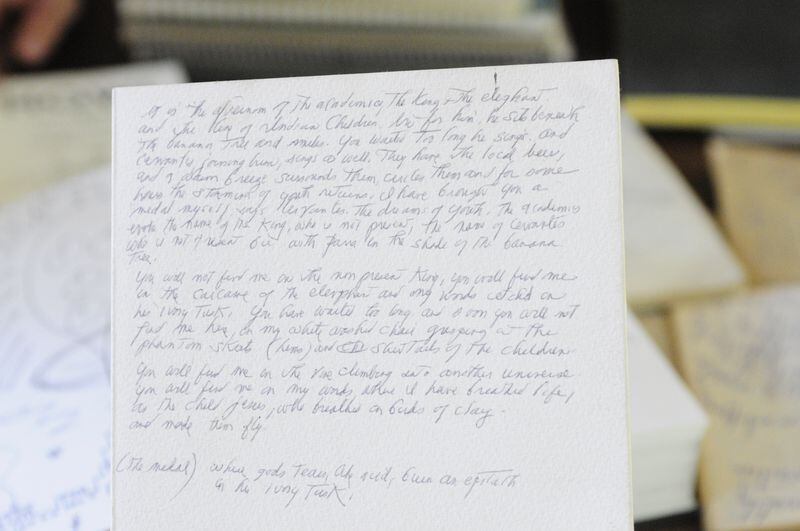 It is the afternoon of the academics, the King & the elephant.
and the King of Indian Children. but for him, he sits beneath
the banana tree and smiles. You waited too long he sings. and
Cervantes, joining him, sings as well. They have the local beer,
and a warm breeze surrounds them, circles them and for some
hours the stamina of youth returns. I have brought you a
medal myself, sings Cervantes. The dreams of youth. The academics
wrote the name of the King, who is not present, the name of Cervantes
who is not present but with in the shade of the banana
tree.
You will not find me in the non present King, you will find me
in the of the elephant and my words etched on
his ivory tusk. You have waited too long and soon you will not
find me here, in my white washed chair grasping at the
phantom skirts (hems) and shirt tails of the children.
You will find me in the vine climbing into another universe
You will find me in my words, where I have breathed life,
as the child Jesus, who breathed on birds of clay.
and made them fly.
(the medal) where gods tears, like acid, burn an epitaph
in his ivory tusk.